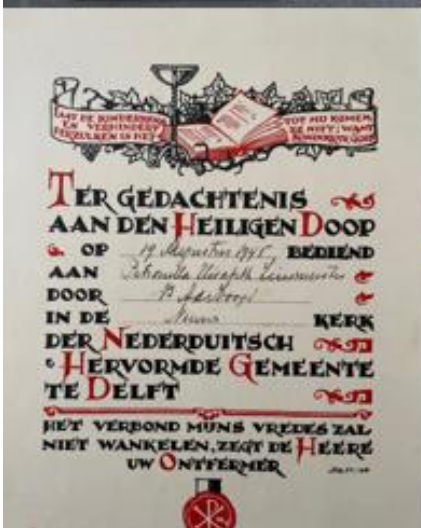 LAAT DE KINDERKENS
EN VERHINDERT
DERZULKEN IS HET
TOT MIJ KOMEN,
ZE NIET; WANT
KONINKRIJK GODS
TER GEDACHTENIS
AAN DEN HEILIGEN DOOP
OP 19 Augustus 1945, BEDIEND
AAN Petronella Elisabeth
DOOR
IN DE Nieuwe KERK
DER NEDERDUITSCH
HERVORMDE GEMEENTE
TE DELFT
HET VERBOND MIJNS VREDES ZAL
NIET WANKELEN, ZEGT DE HEERE
UW ONTFERMER